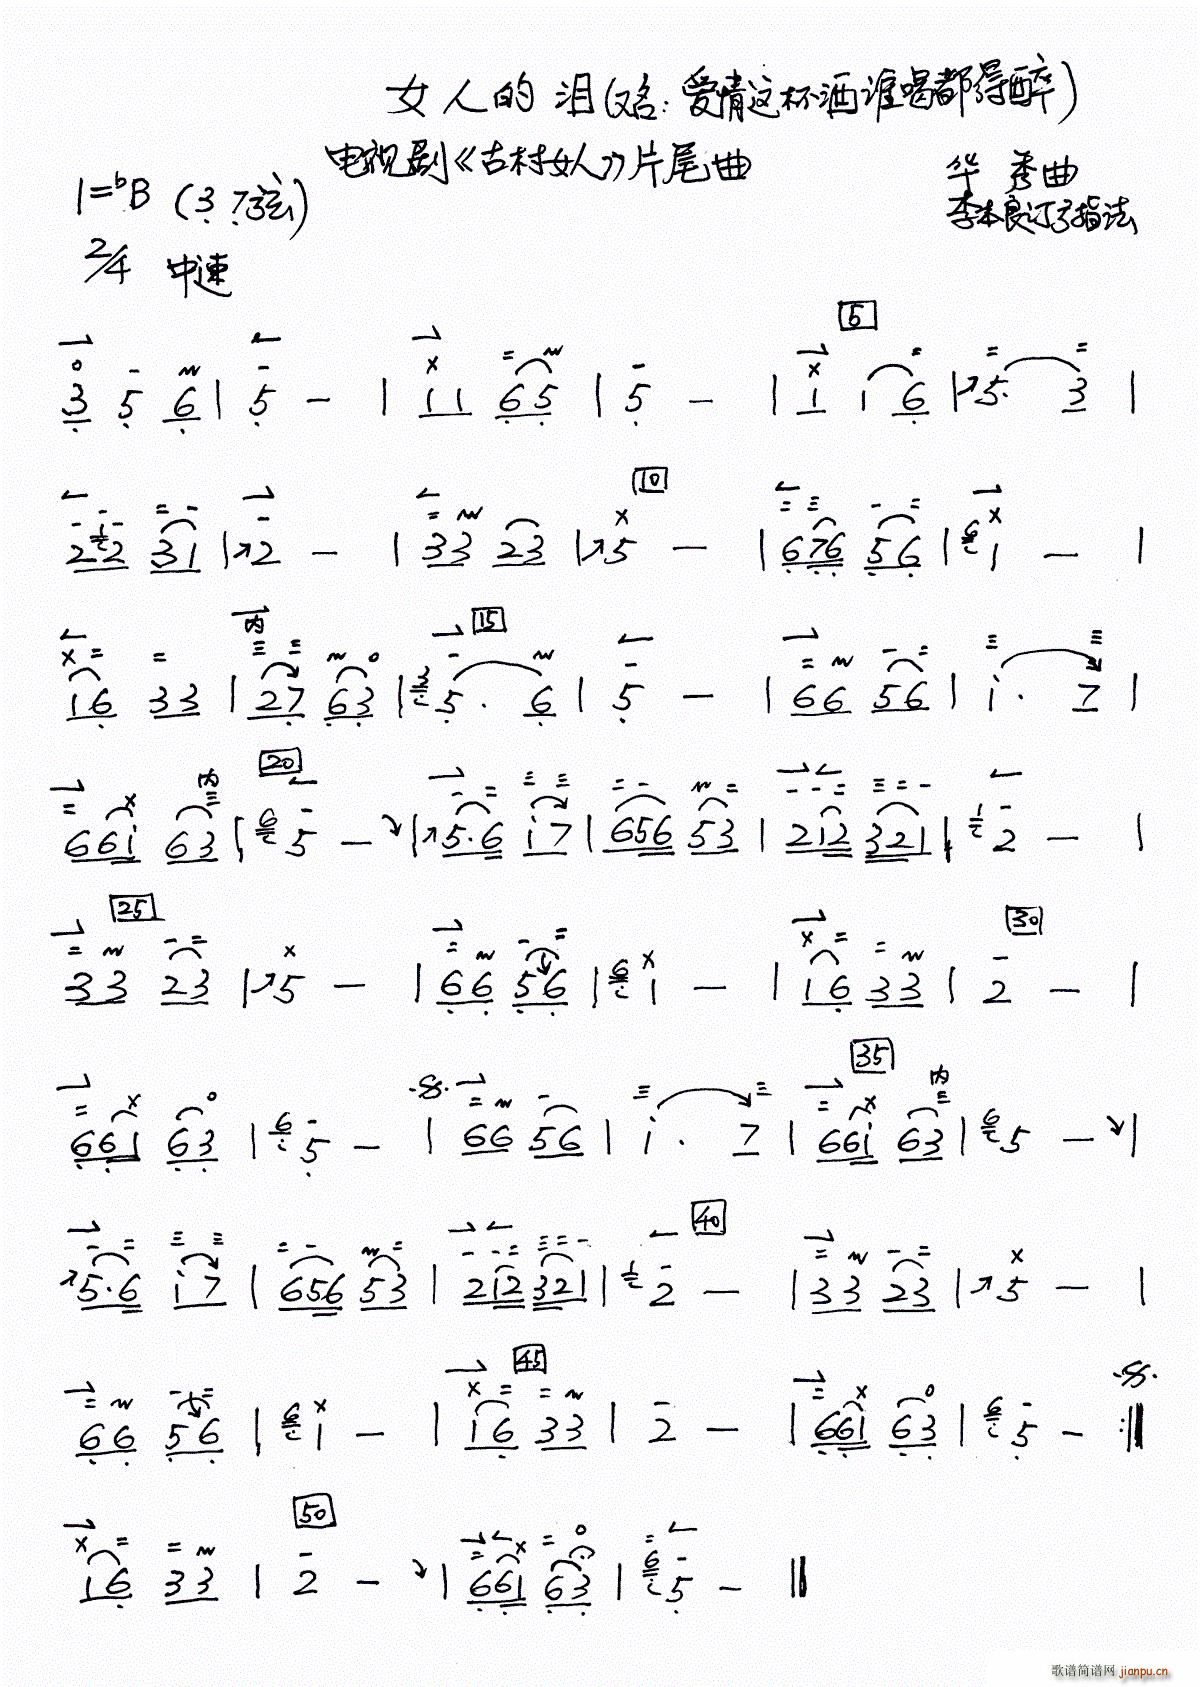 女人的泪(又名:爱情这杯酒谁喝都得醉)
电视剧《古村女人》片尾曲
1=bB (3 7弦)
华 秀曲
李本良订弓指法
2/4 中速
5
3 5 6 | 5 - | 1 1 6 5 | 5 - | 1 1 6 | 5· 3 |
10
2 2 3 1 | 2 - | 3 3 2 3 | 5 - | 6 7 6 5 6 | 1 - |
内 15
1 6 3 3 | 2 7 6 3 | 5· 6 | 5 - | 6 6 5 6 | i· 7 |
内 20
6 6 i 6 3 | 5 - | 5·6 i 7 | 6 5 6 5 3 | 2 1 2 3 2 1 | 2 - |
25 30
3 3 2 3 | 5 - | 6 6 5 6 | 1 - | 1 6 3 3 | 2 - |
35 内
6 6 1 6 3 | 5 - | 6 6 5 6 | i· 7 | 6 6 i 6 3 | 5 - |
40
5·6 i 7 | 6 5 6 5 3 | 2 1 2 3 2 1 | 2 - | 3 3 2 3 | 5 - |
45
6 6 5 6 | 1 - | 1 6 3 3 | 2 - | 6 6 1 6 3 | 5 - :||
50
1 6 3 3 | 2 - | 6 6 1 6 3 | 5 - ||
歌谱简谱网 jianpu.cn